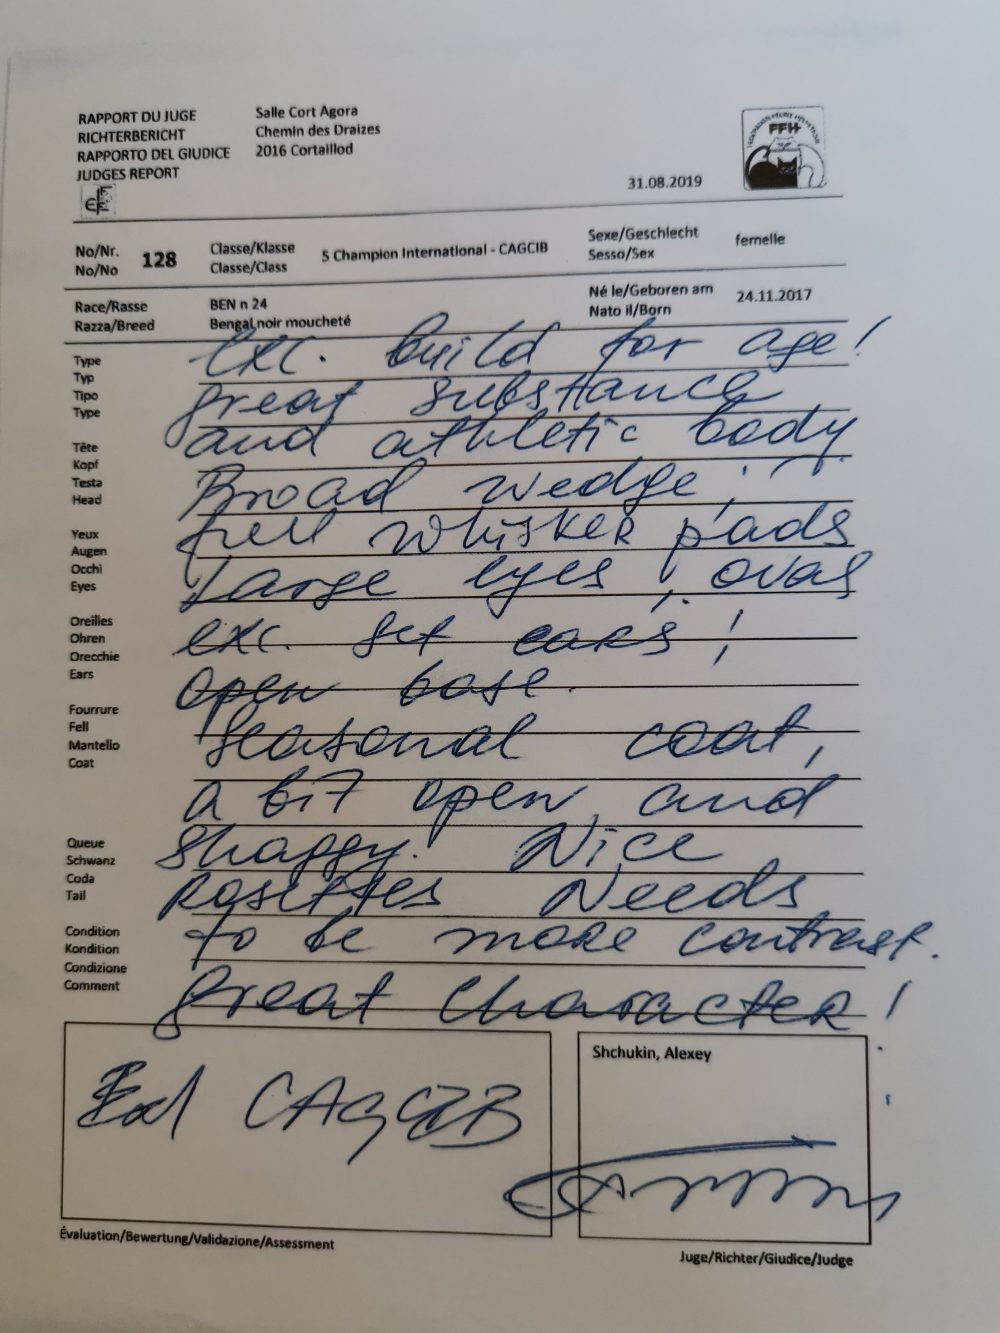 RAPPORT DU JUGE
RICHTERBERICHT
RAPPORTO DEL GIUDICE
JUDGES REPORT
Salle Cort Agora
Chemin des Draizes
2016 Cortaillod
31.08.2019
FFH
No/Nr.
No/No
128
Classe/Klasse
Classe/Class
5 Champion International - CAGCIB
Sexe/Geschlecht
Sesso/Sex
femelle
Race/Rasse
Razza/Breed
BEN n 24
Bengal noir moucheté
Né le/Geboren am
Nato il/Born
24.11.2017
Type
Typ
Tipo
Type
exc. build for age!
great substance
and athletic body
Tête
Kopf
Testa
Head
Broad wedge!
full whisker pads
Yeux
Augen
Occhi
Eyes
Large eyes, oval
Oreilles
Ohren
Orecchie
Ears
exc. set ears!
open base.
Fourrure
Fell
Mantello
Coat
Seasonal coat,
a bit open and
shaggy. Nice
Queue
Schwanz
Coda
Tail
Rosettes Needs
Condition
Kondition
Condizione
Comment
to be more contrast.
Great character!
CAGCIB
Évaluation/Bewertung/Validazione/Assessment
Shchukin, Alexey
Juge/Richter/Giudice/Judge